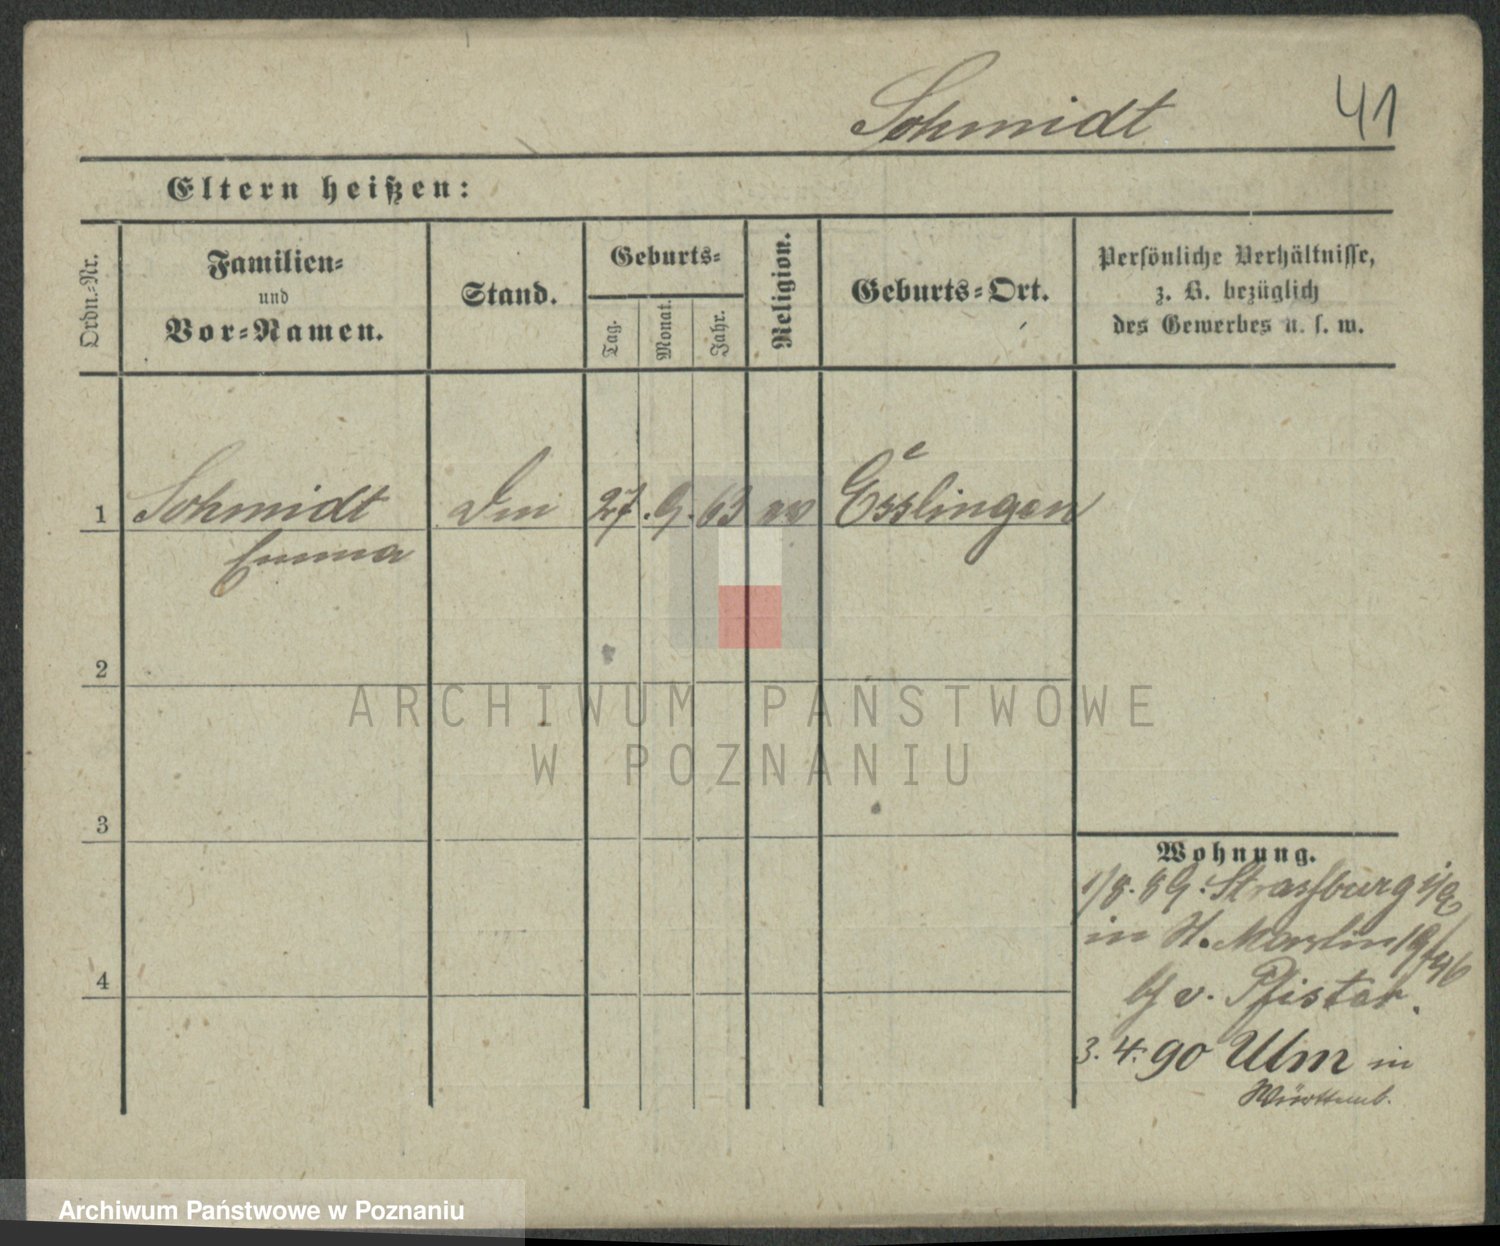 Schmidt
41
Eltern heißen:
Ordn.-Nr.
Familien-
und
Vor-Namen.
Stand.
Geburts-
Tag.
Monat.
Jahr.
Religion.
Geburts-Ort.
Persönliche Verhältnisse,
z. B. bezüglich
des Gewerbes u. s. w.
1 Schmidt 27. 9. 63 ev Esslingen
Emma
2
3
4
Wohnung.
1/8. 89. Strassburg i/E
in St. Martin 19/
46
b/ v. Pfister.
3. 4. 90 Ulm in
Württemb.
ARCHIWUM PAŃSTWOWE
W POZNANIU
Archiwum Państwowe w Poznaniu